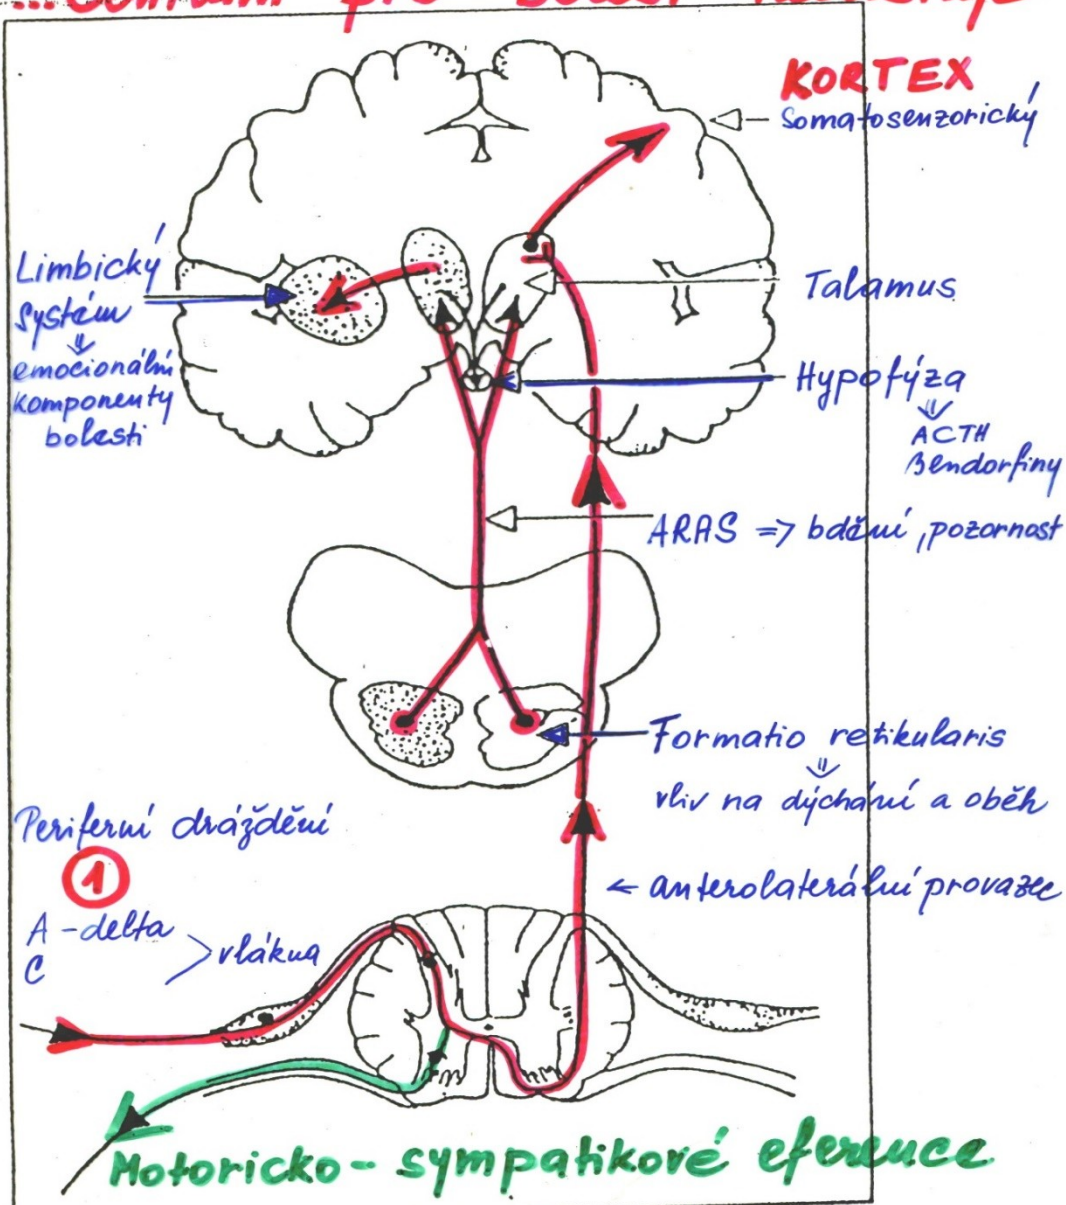 pro
KORTEX
Somatosenzorický
Limbický
systém
emocionální
komponenty
bolesti
Talamus
Hypofýza
ACTH
Bendorfiny
ARAS => bdění, pozornost
Formatio retikularis
vliv na dýchání a oběh
Periferní dráždění
1
← anterolaterální provazec
A-delta
C
vlákna
Motoricko-sympatikové eference